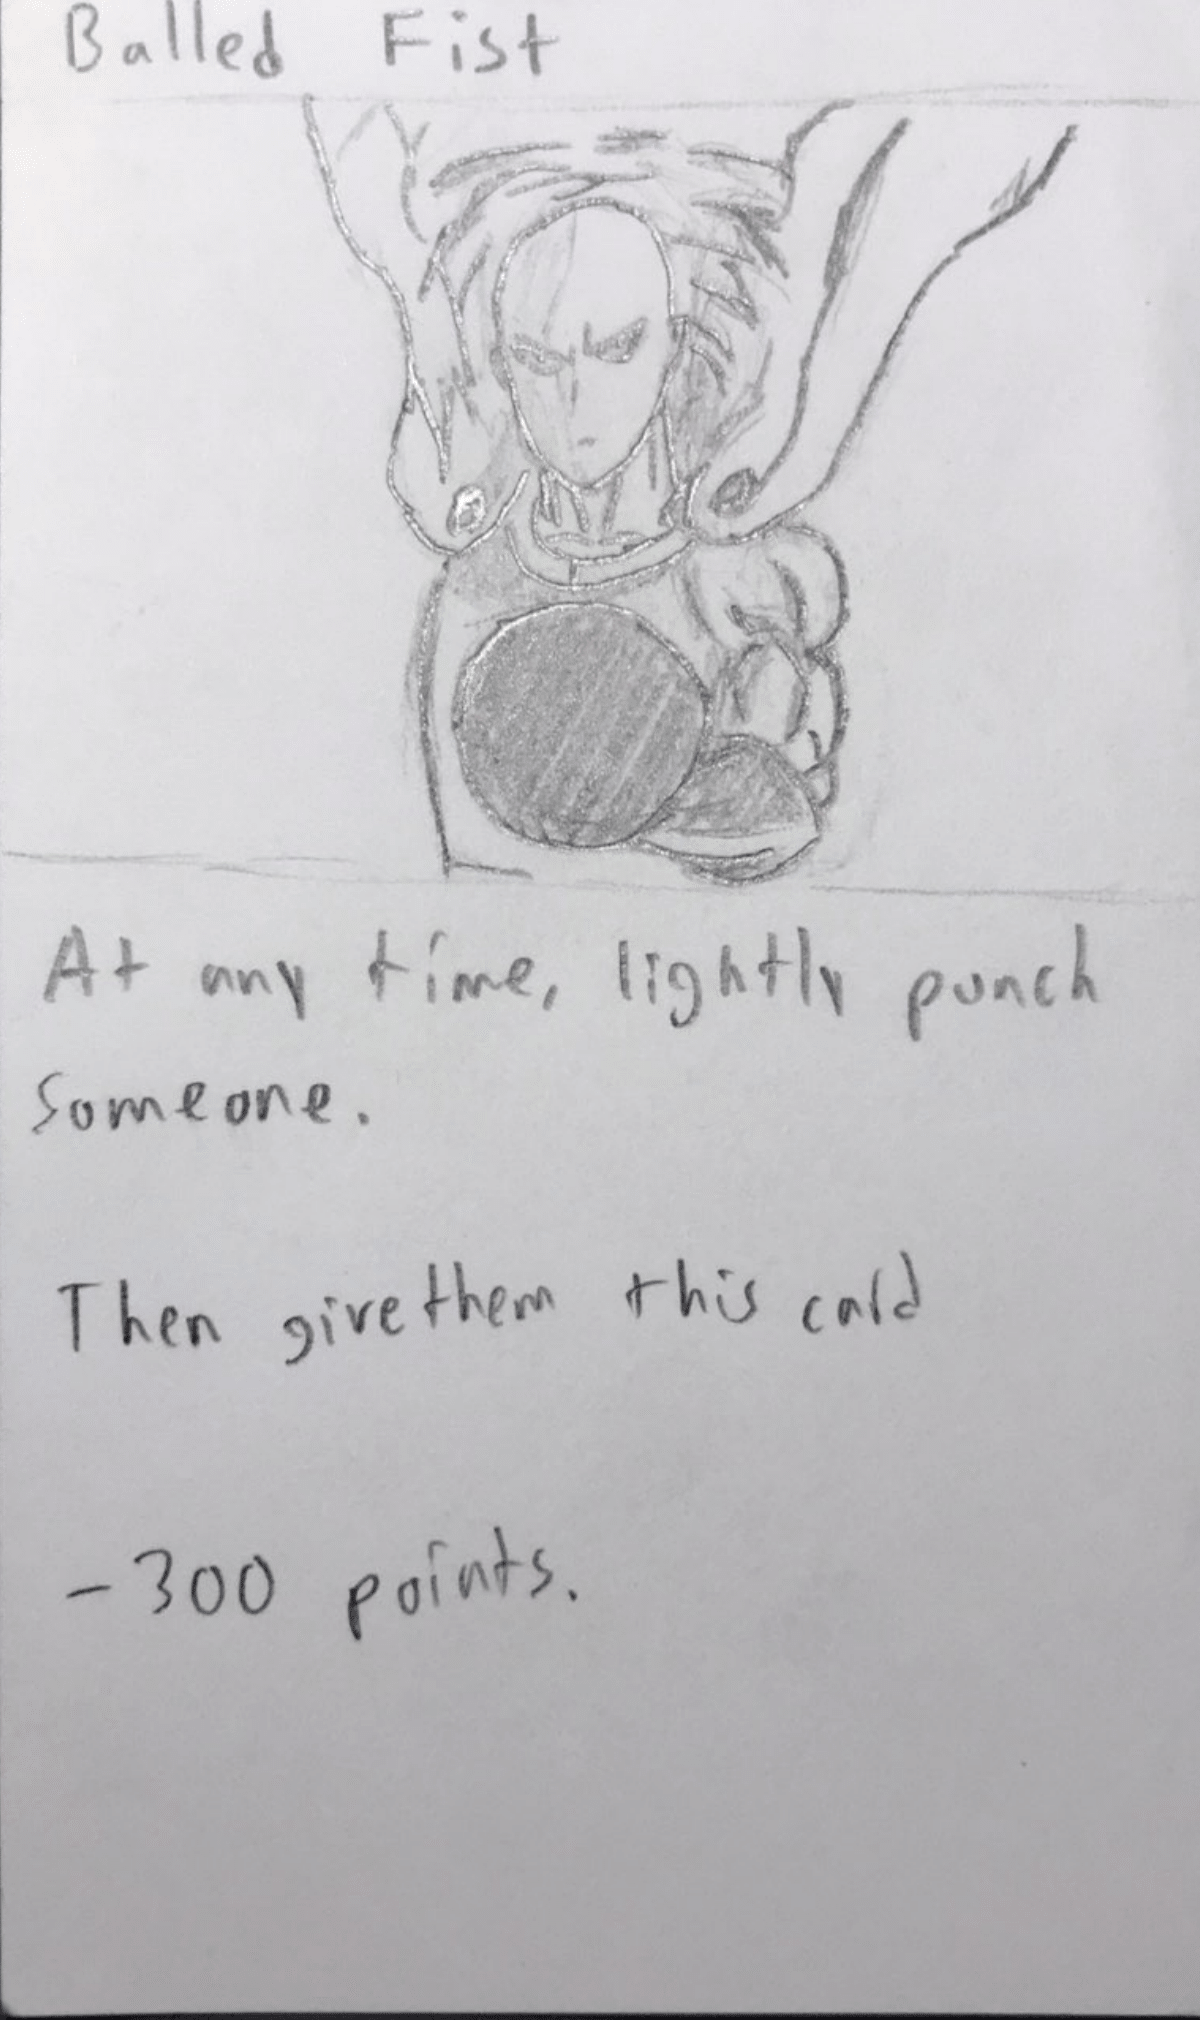 Balled Fist
At any time, lightly punch
someone.
Then give them this card
-300 points.